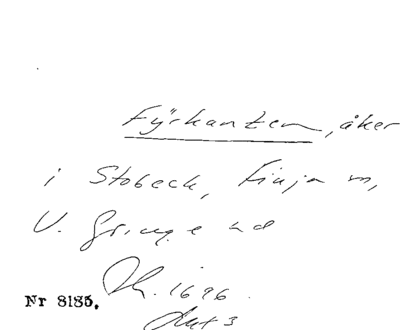 Fyrkanten, åker
i Stobeck, Finja sn,
V. Göinge hd
Lh. 1696.
Nr 8185. Akt 3